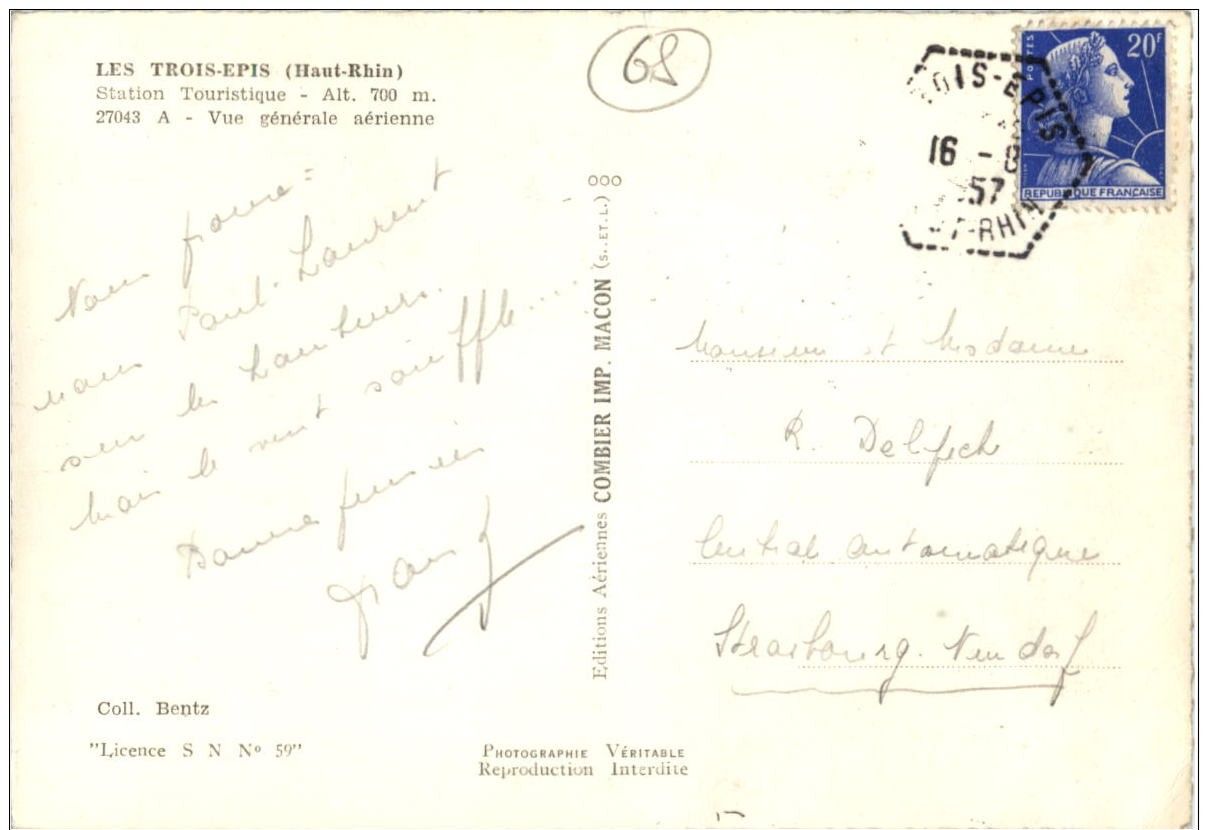 LES TROIS-EPIS (Haut-Rhin)
Station Touristique - Alt. 700 m.
27043 A - Vue générale aérienne
68
OIS-EPIS
16 - 8
57
T-RHIN
POSTES
20F
REPUBLIQUE FRANÇAISE
Nous
nous Paul-Laurent
sur les hauteurs.
Mais le vent souffle....
Bonne
Editions Aériennes COMBIER IMP. MACON (S. ET. L.) OOO
Monsieur et Madame
R.
Central automatique
Strasbourg. Neudorf
Coll. Bentz
"Licence S N No 59"
PHOTOGRAPHIE VÉRITABLE
Reproduction Interdite